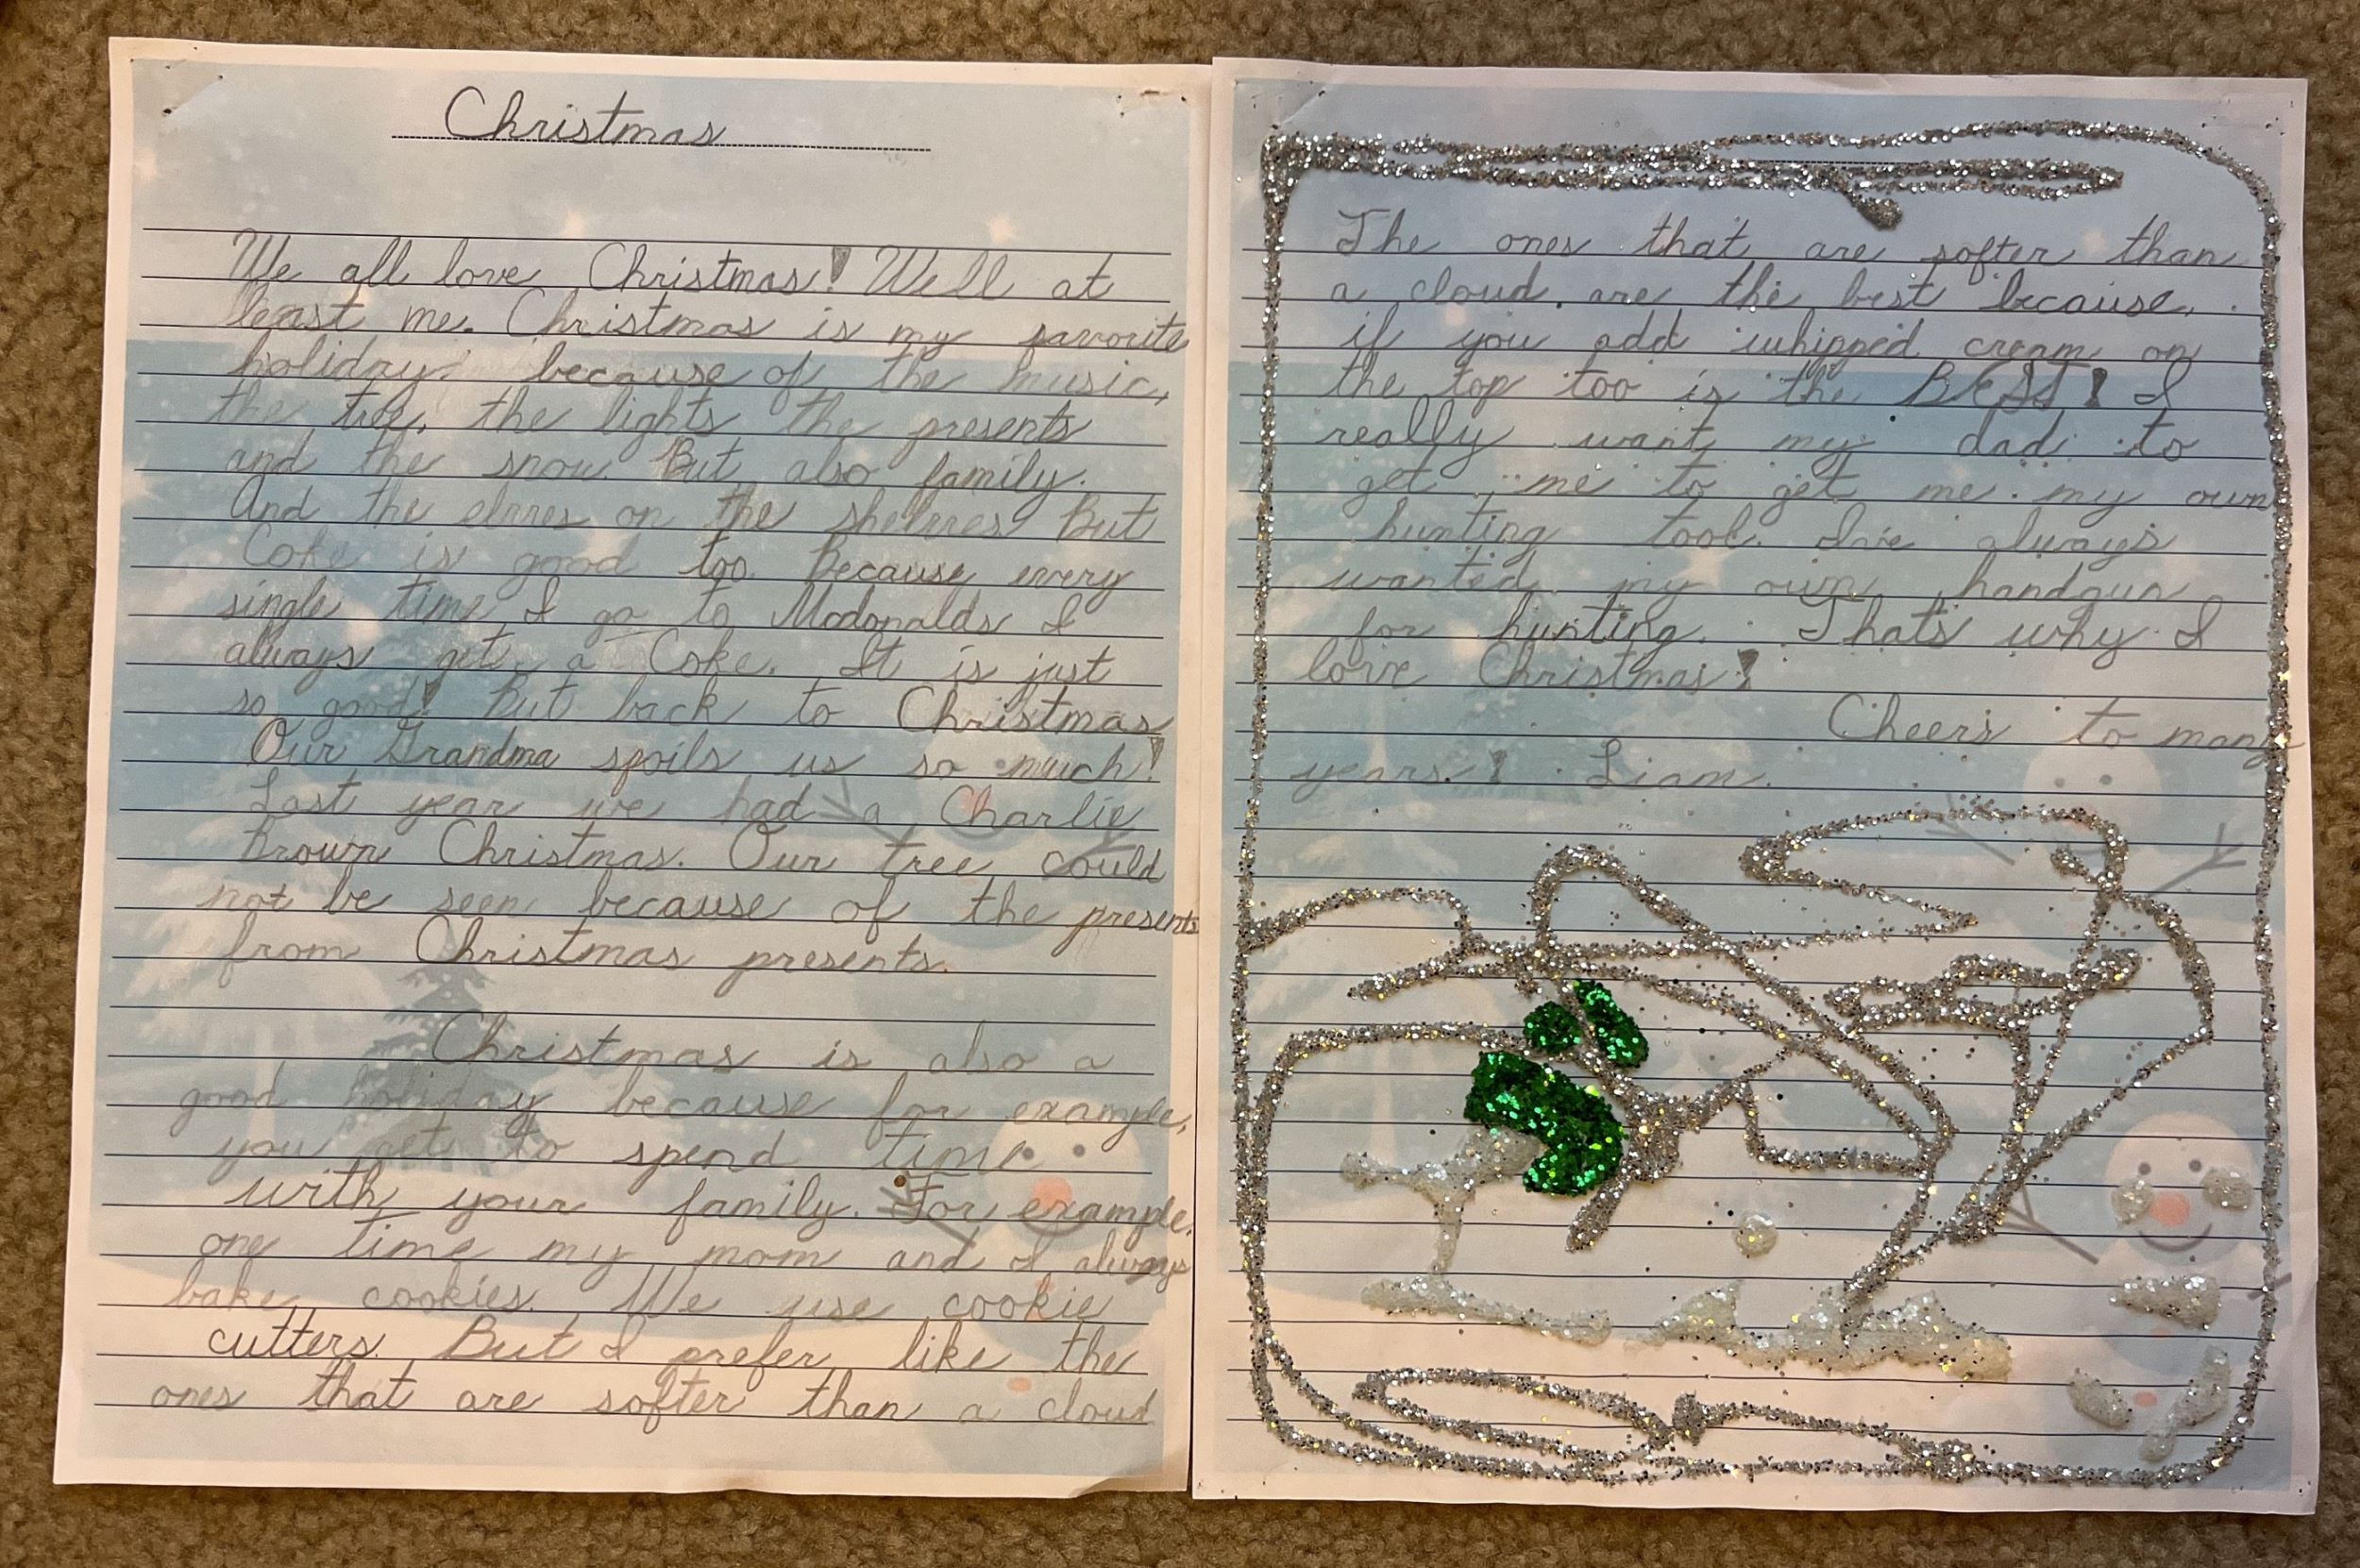 Christmas
We all love Christmas! Well at
least me. Christmas is my favorite
holiday. because of the music,
the tree, the lights the presents
and the snow. But also family.
And the elves on the shelves But
Coke is good too. Because every
single time I go to Mcdonalds I
always get a Coke. It is just
so good! But back to Christmas
Our Grandma spoils us so much!
Last year we had a Charlie
Brown Christmas. Our tree could
not be seen because of the presents
from Christmas presents.
Christmas is also a
good holiday because for example,
you get to spend time
with your family. For example,
one time my mom and I always
bake cookies. We use cookie
cutters. But I prefer like the
ones that are softer than a cloud
The ones that are softer than
a cloud. are the best because,
if you add whipped cream on
the top too is the BEST! I
really want my dad to
get me to get me my own
hunting tool. I've always
wanted my own handgun
for hunting. That's why I
love Christmas!
Cheers to many
years! Liam.